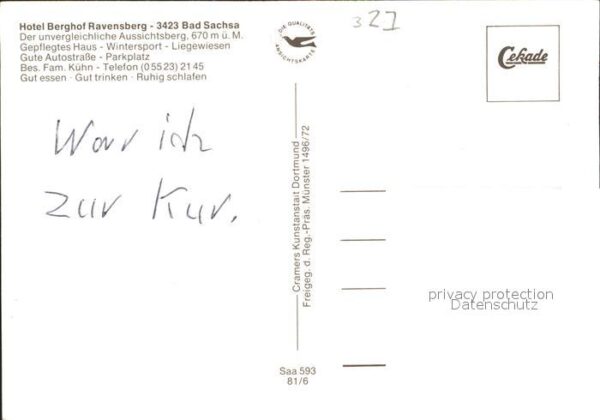 Hotel Berghof Ravensberg - 3423 Bad Sachsa
Der unvergleichliche Aussichtsberg, 670 m ü. M.
Gepflegtes Haus - Wintersport - Liegewiesen
Gute Autostraße - Parkplatz
Bes. Fam. Kühn - Telefon (0 55 23) 21 45
Gut essen · Gut trinken · Ruhig schlafen
DIE QUALITÄTS
ANSICHTSKARTE
327
Cekade
War ich
zur Kur.
Cramers Kunstanstalt Dortmund
Freigeg. d. Reg.-Präs. Münster 1496/72
privacy protection
Datenschutz
Saa 593
81/6